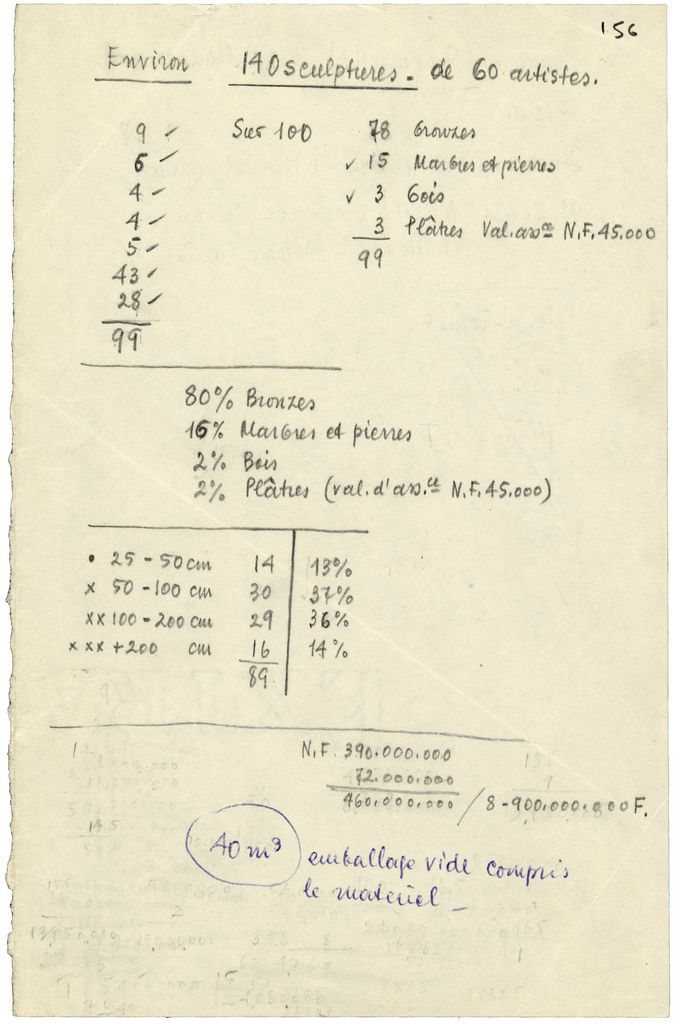 156
Environ 140 sculptures. de 60 artistes.
9 ✓
6 ✓
4 ✓
4 ✓
5 ✓
43 ✓
28 ✓
99
Sur 100
78 bronzes
✓ 15 Marbres et pierres
✓ 3 bois
3 Plâtres Val. assce N.F. 45.000
99
80% Bronzes
16% Marbres et pierres
2% Bois
2% Plâtres (val. d'ass.ce N.F. 45.000)
• 25 - 50 cm 14 13%
x 50 - 100 cm 30 37%
xx 100 - 200 cm 29 36%
x xx + 200 cm 16 14%
89
N.F. 390.000.000
72.000.000
460.000.000 / 8-900.000.000 F.
40 m³ emballage vide compris
le matériel _